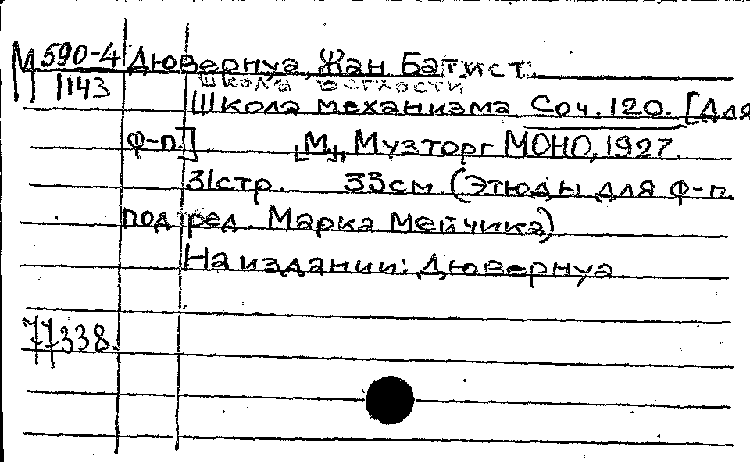 М 590-4 Дювернуа, Жан Батист.
1143 Школа беглости
Школа механизма Соч. 120. [Для
ф-п.] [М.], Музторг МОНО, 1927.
31стр. 33см (Этюды для ф-п.
под ред. Марка Мейчика)
На издании: Дювернуа
77338.